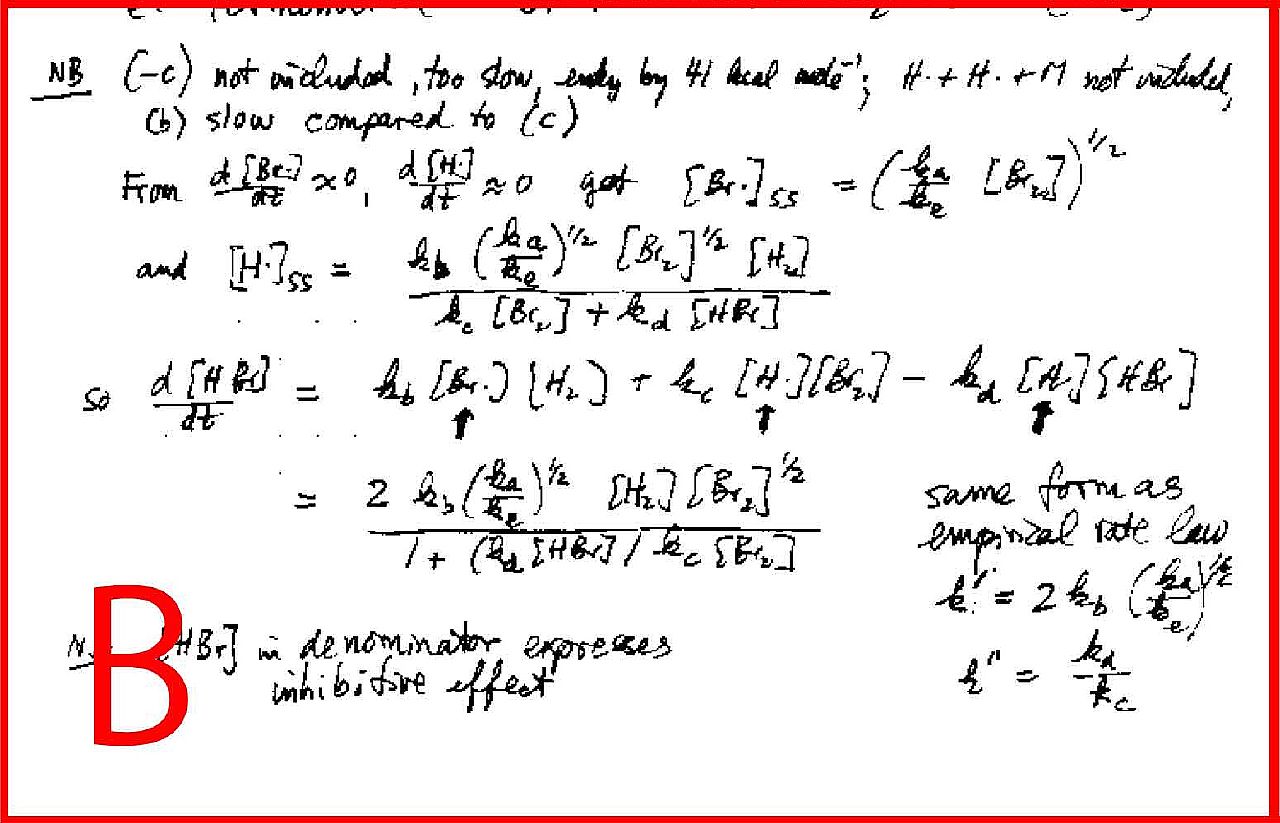 NB (-c) not included, too slow, endo by 41 kcal mole⁻¹; H· + H· + M not included,
(b) slow compared to (c)
From d[Br·]/dt ≈ 0, d[H·]/dt ≈ 0 get [Br·]ss = (ka/ke [Br₂])^1/2
and [H·]ss = kb (ka/ke)^1/2 [Br₂]^1/2 [H₂] / kc [Br₂] + kd [HBr]
so d[HBr]/dt = kb [Br·][H₂] + kc [H·][Br₂] - kd [H·][HBr]
= 2 kb (ka/ke)^1/2 [H₂][Br₂]^1/2 / 1 + (kd [HBr] / kc [Br₂]
same form as
empirical rate law
k' = 2 kb (ka/ke)^1/2
k" = kd/kc
B
[HBr] in denominator expresses
inhibitive effect